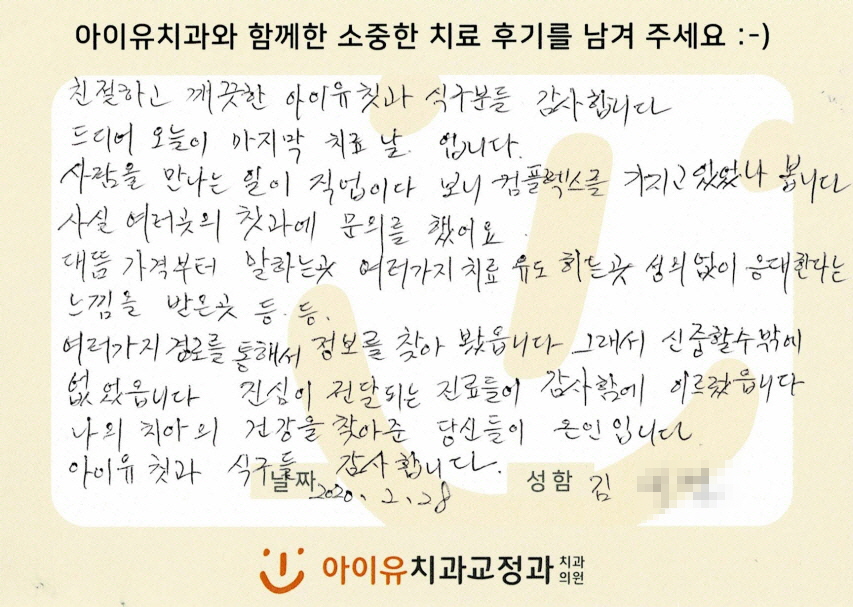 아이유치과와 함께한 소중한 치료 후기를 남겨 주세요 :-)
친절하고 깨끗한 아이유칫과 식구분들 감사합니다
드디어 오늘이 마지막 치료 날 입니다.
사람을 만나는 일이 직업이다 보니 컴플렉스를 가지고 있었나 봅니다
사실 여러곳의 칫과에 문의를 했어요.
대뜸 가격부터 말하는곳 여러가지 치료 유도 하는곳 성의 없이 응대한다는
느낌을 받은곳 등. 등.
여러가지 경로를 통해서 정보를 찾아 봤읍니다 그래서 신중할수밖에
없었읍니다 진심이 전달되는 진료들이 감사함에 이르렀읍니다
나의 치아의 건강을 찾아준 당신들이 은인입니다
아이유 칫과 식구들 감사합니다.
날짜 2020. 2. 28 성함 김
아이유치과교정과 치과의원